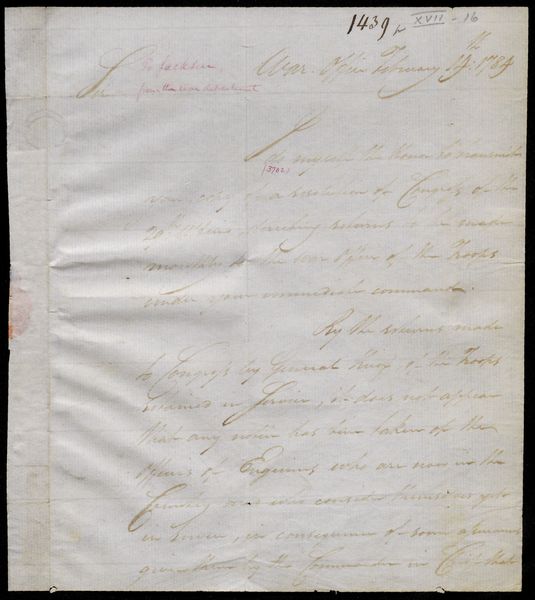 1439
XVII - 16
War Office February 14th: 1784
Sir
To Jackson
from the war department
I do myself the Honor to transmit
(3702)
you copy of a resolution of Congress of the
20th directing returns to be made
monthly to the War Office of the Troops
under your immediate command.
By the returns made
to Congress by General Knox of the Troops
retained in Service, it does not appear
that any notice has been taken of the
Officers of Engineers who are now in the
Country and who consider themselves yet
in service, in consequence of some assurances
given them by the Commander in Chief that